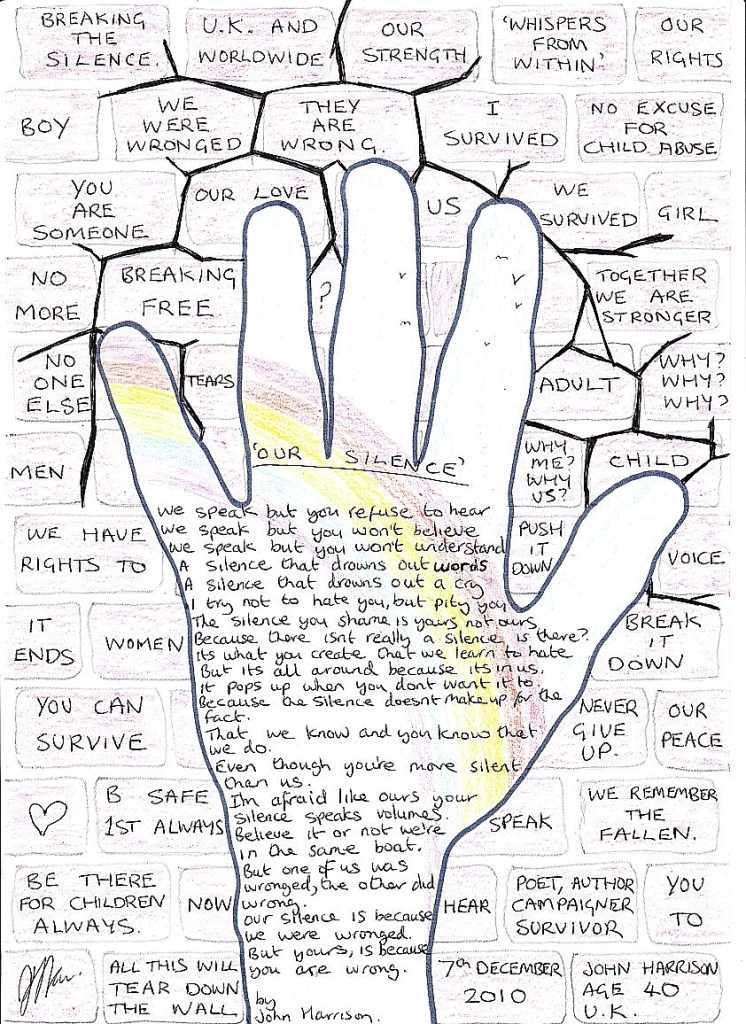 BREAKING
THE
SILENCE.
U.K. AND
WORLDWIDE
OUR
STRENGTH
'WHISPERS
FROM
WITHIN'
OUR
RIGHTS
BOY
WE
WERE
WRONGED
THEY
ARE
WRONG.
I
SURVIVED
NO EXCUSE
FOR
CHILD ABUSE
YOU
ARE
SOMEONE
OUR LOVE
US
WE
SURVIVED
GIRL
NO
MORE
BREAKING
FREE
?
TOGETHER
WE ARE
STRONGER
NO
ONE
ELSE
TEARS
ADULT
WHY?
WHY?
WHY?
MEN
WHY
ME?
WHY
US?
CHILD
WE HAVE
RIGHTS TO
PUSH
IT
DOWN
VOICE
IT
ENDS
WOMEN
BREAK
IT
DOWN
YOU CAN
SURVIVE
NEVER
GIVE
UP.
OUR
PEACE
B SAFE
1ST ALWAYS
SPEAK
WE REMEMBER
THE
FALLEN.
BE THERE
FOR CHILDREN
ALWAYS.
NOW
HEAR
POET, AUTHOR
CAMPAIGNER
SURVIVOR
YOU
TO
ALL THIS WILL
TEAR DOWN
THE WALL
7th DECEMBER
2010
JOHN HARRISON
AGE 40
U.K.
'OUR SILENCE'
We speak but you refuse to hear
we speak but you won't believe
we speak but you won't understand
A silence that drowns out words
A silence that drowns out a cry
I try not to hate you, but pity you
The silence you shame is yours not ours
Because there isnt really a silence is there?
Its what you create that we learn to hate
But its all around because its in us.
It pops up when you dont want it to
Because the silence doesnt make up for the
fact.
That we know and you know that
we do.
Even though you're more silent
than us.
I'm afraid like ours your
silence speaks volumes.
Believe it or not we're
in the same boat.
But one of us was
wronged, the other did
wrong.
Our silence is because
we were wronged.
But yours, is because
you are wrong.
by
John Harrison.